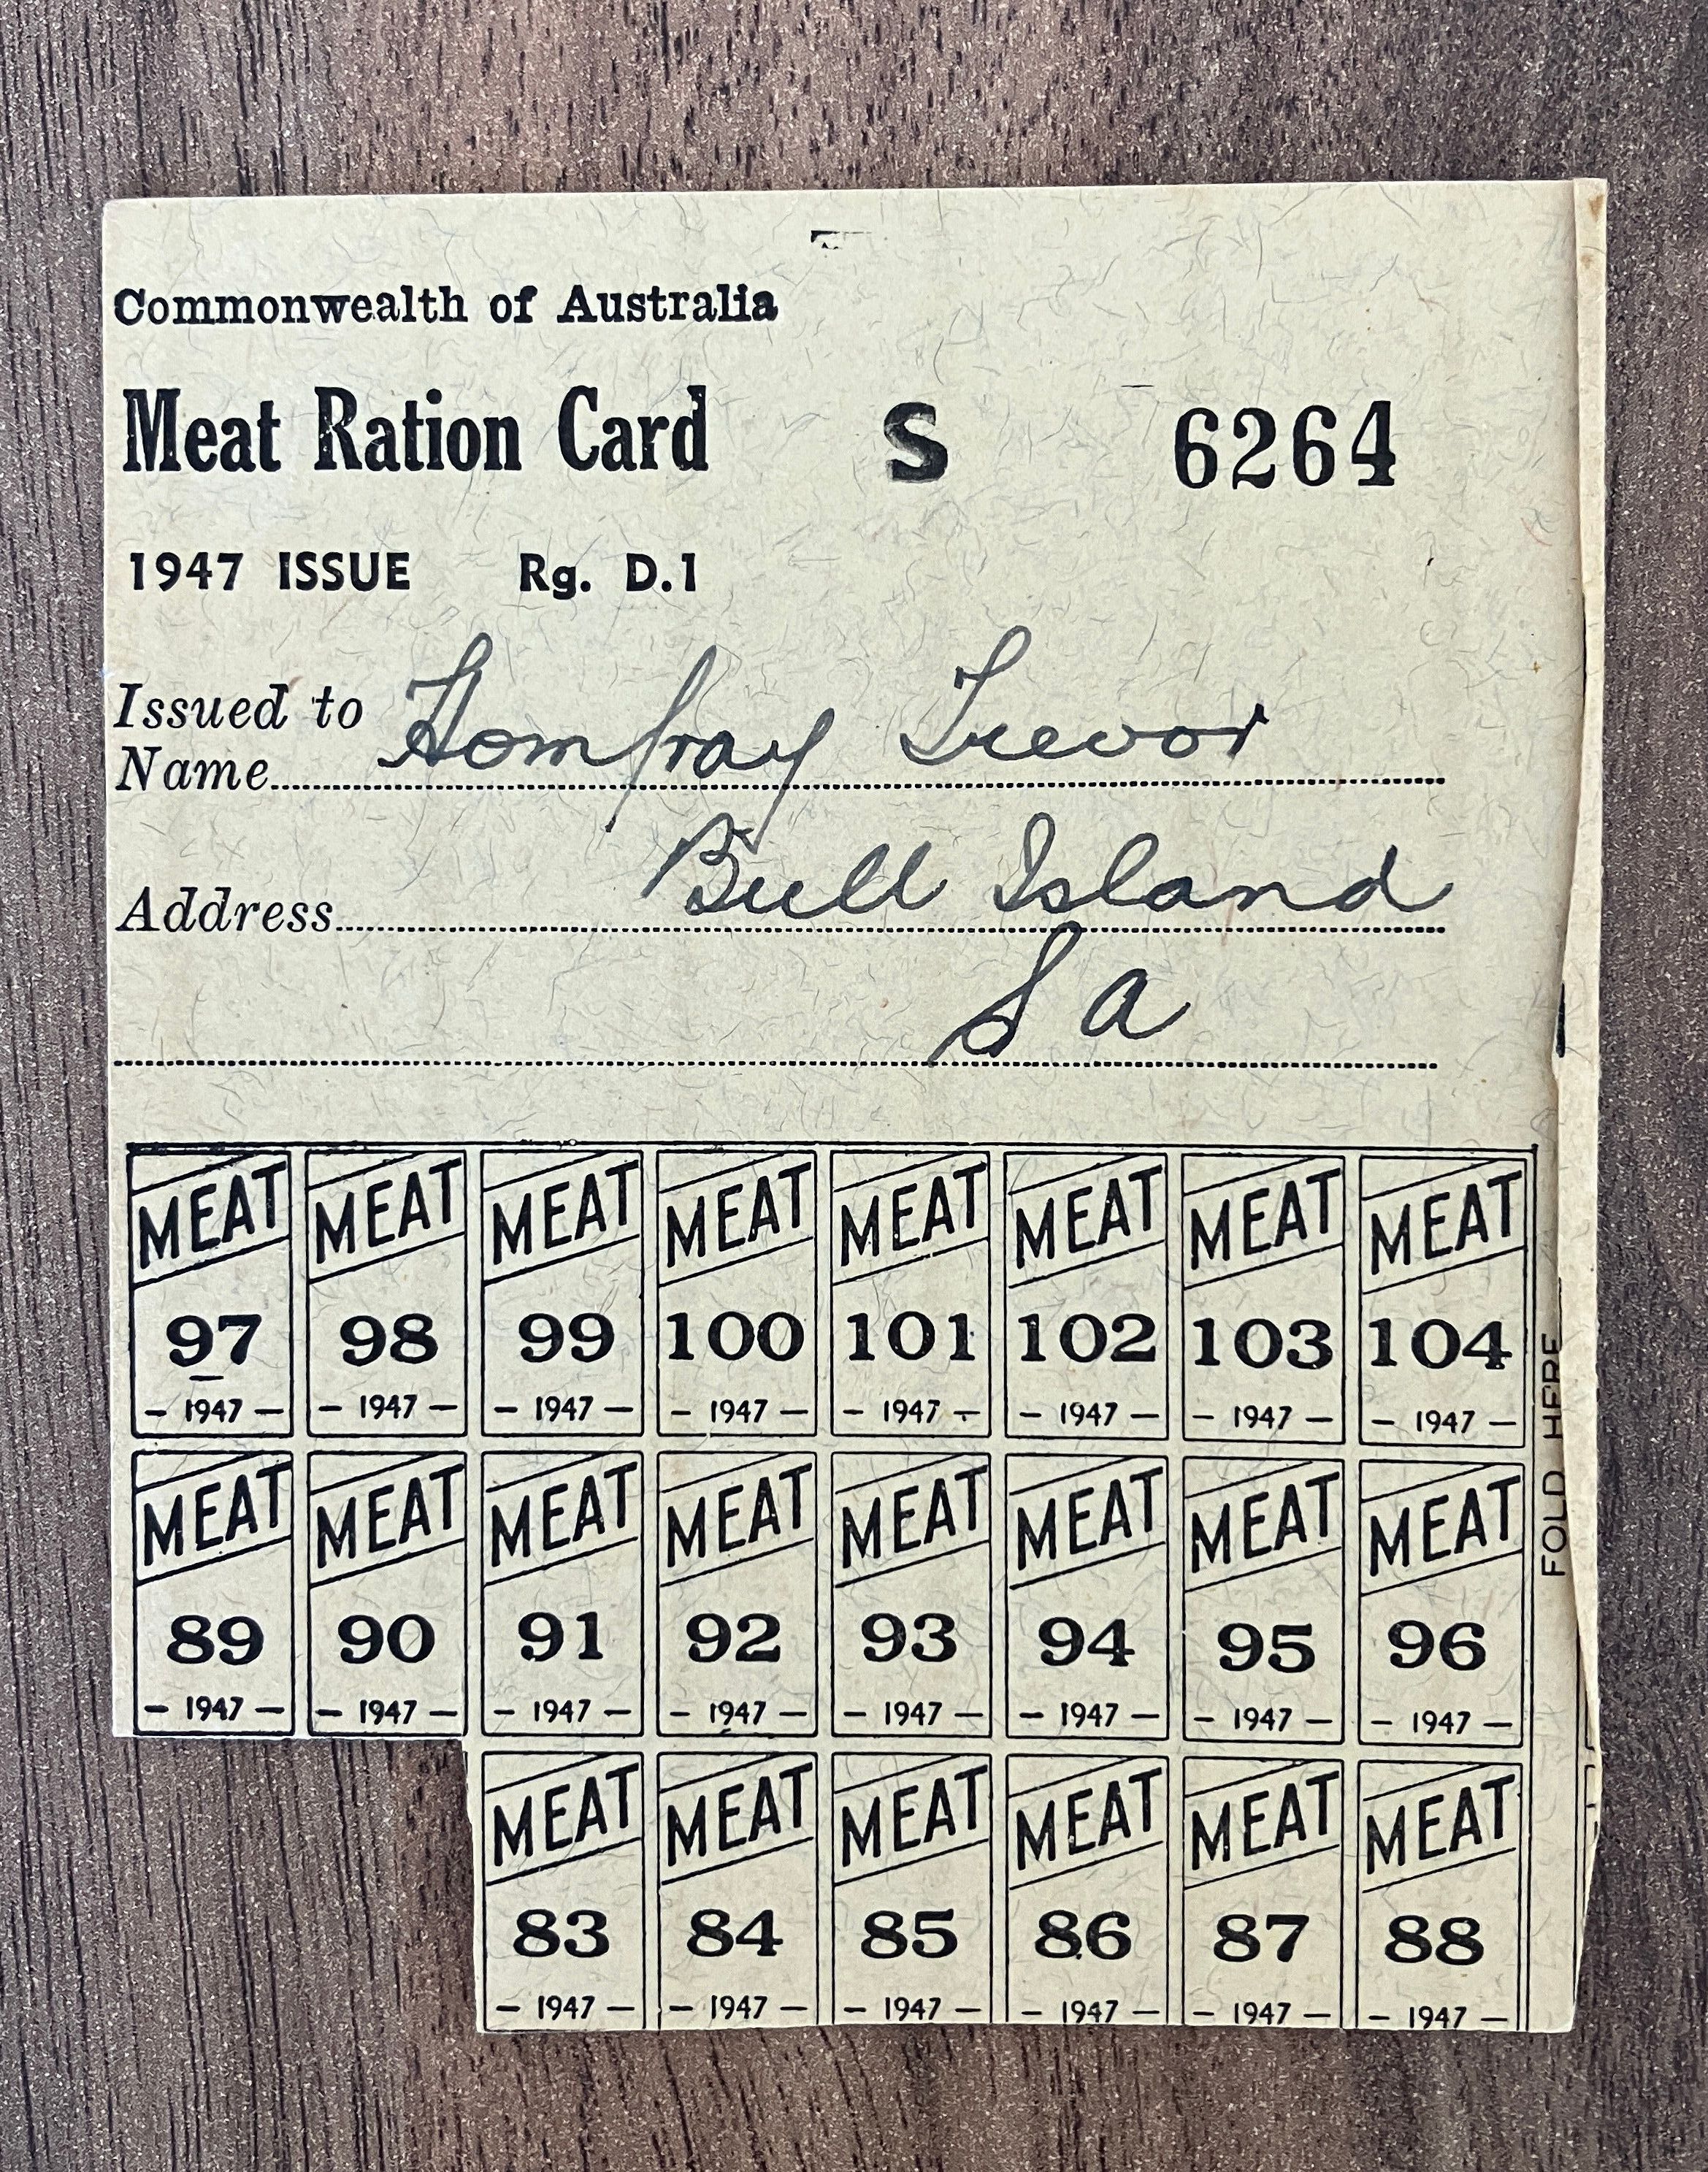 Commonwealth of Australia
Meat Ration Card S 6264
1947 ISSUE Rg. D.1
Issued to
Name Homfray Trevor
Address Bull Island
S a
MEAT MEAT MEAT MEAT MEAT MEAT MEAT MEAT
97 98 99 100 101 102 103 104
– 1947 – – 1947 – – 1947 – – 1947 – – 1947 – – 1947 – – 1947 – – 1947 –
MEAT MEAT MEAT MEAT MEAT MEAT MEAT MEAT
89 90 91 92 93 94 95 96
– 1947 – – 1947 – – 1947 – – 1947 – – 1947 – – 1947 – – 1947 – – 1947 –
MEAT MEAT MEAT MEAT MEAT MEAT
83 84 85 86 87 88
– 1947 – – 1947 – – 1947 – – 1947 – – 1947 – – 1947 –
FOLD HERE